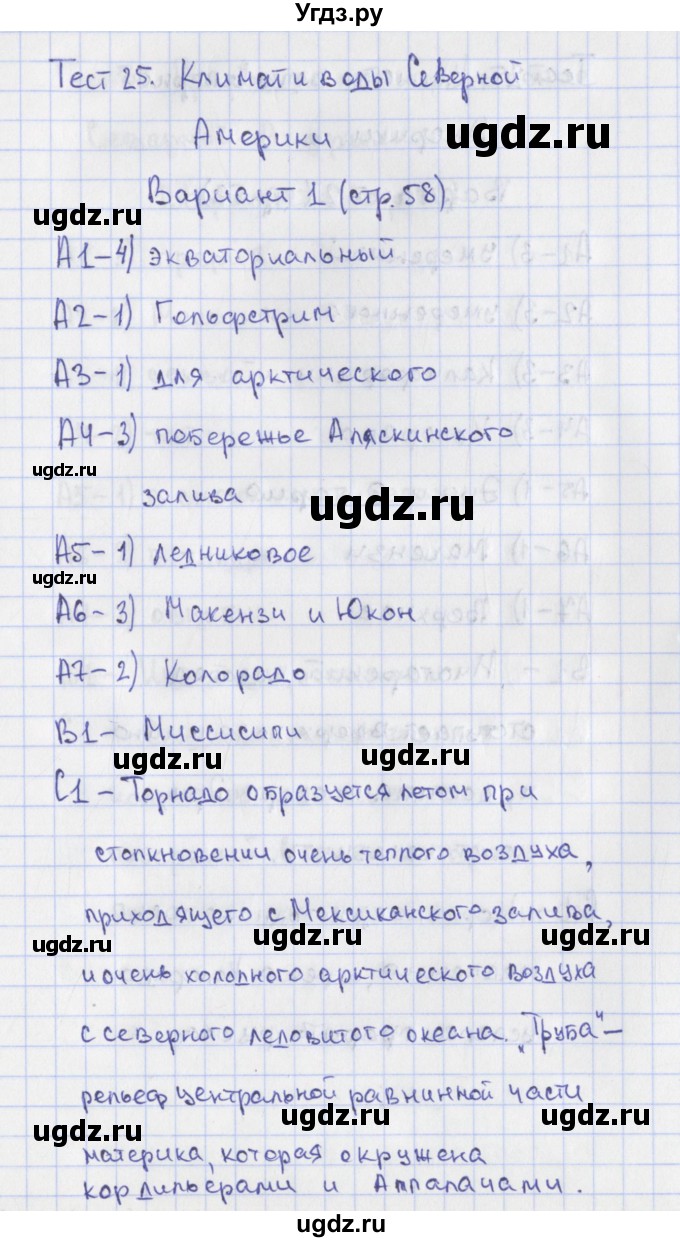 Угдз.ру
Тест 25. Климат и воды Северной
Америки
ugdz.ru
Вариант 1 (стр. 58)
ugdz.ru
А1-4) экваториальный
А2-1) Гольфстрим
А3-1) для арктического
А4-3) побережье Аляскинского
ugdz.ru
залива
ugdz.ru
А5-1) ледниковое
ugdz.ru
А6-3) Макензи и Юкон
А7-2) Колорадо
В1- Миссисипи
ugdz.ru ugdz.ru
С1 - Торнадо образуется летом при
столкновении очень теплого воздуха,
приходящего с Мексиканского залива,
ugdz.ru ugdz.ru ugdz.ru
и очень холодного арктического воздуха
с северного ледовитого океана. „Труба" -
рельеф центральной равнинной части
ugdz.ru ugdz.ru ugdz.ru
материка, которая окружена
кордильерами и Аппалачами.
ugdz.ru